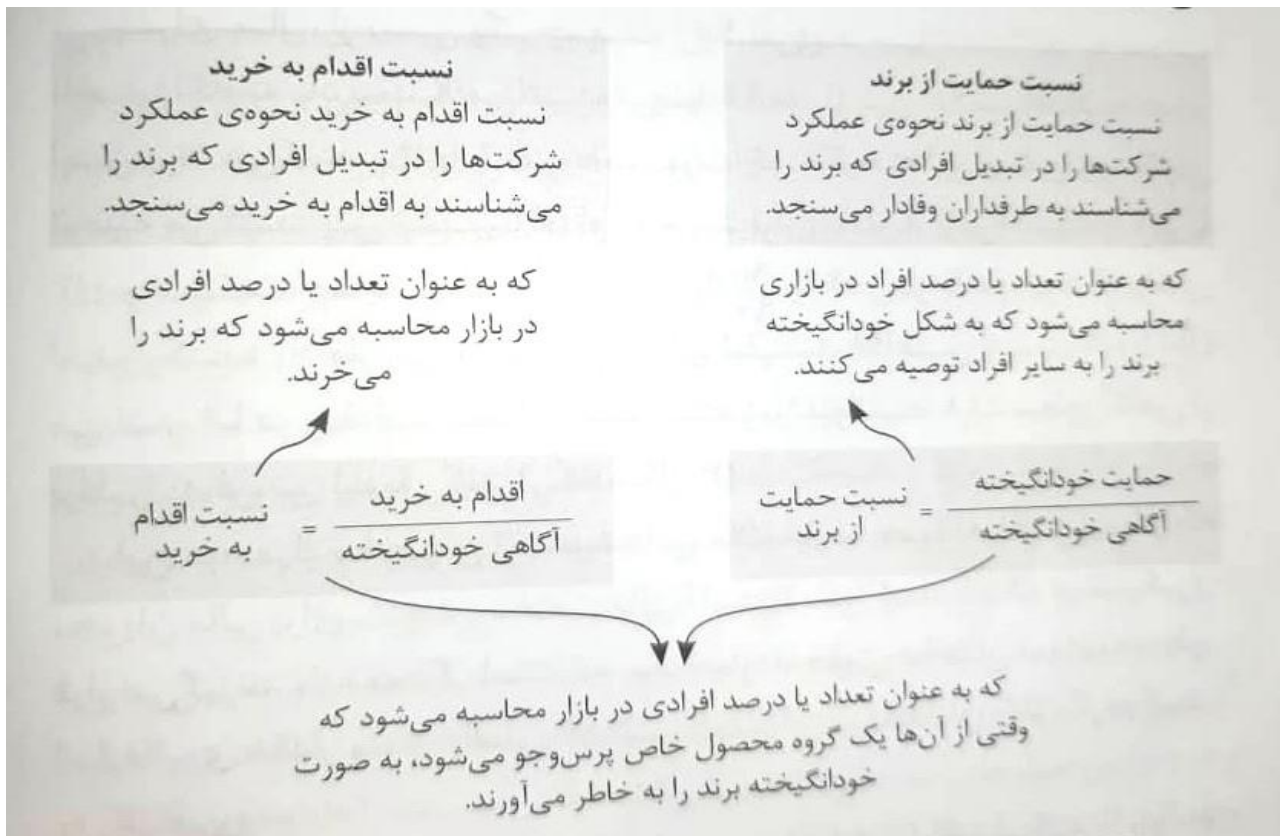 نسبت حمایت از برند
نسبت حمایت از برند نحوه‌ی عملکرد
شرکت‌ها را در تبدیل افرادی که برند را
می‌شناسند به طرفداران وفادار می‌سنجد.
که به عنوان تعداد یا درصد افراد در بازاری
محاسبه می‌شود که به شکل خودانگیخته
برند را به سایر افراد توصیه می‌کنند.
نسبت حمایت
از برند
=
حمایت خودانگیخته
آگاهی خودانگیخته
نسبت اقدام به خرید
نسبت اقدام به خرید نحوه‌ی عملکرد
شرکت‌ها را در تبدیل افرادی که برند را
می‌شناسند به اقدام به خرید می‌سنجد.
که به عنوان تعداد یا درصد افرادی
در بازار محاسبه می‌شود که برند را
می‌خرند.
نسبت اقدام
به خرید
=
اقدام به خرید
آگاهی خودانگیخته
که به عنوان تعداد یا درصد افرادی در بازار محاسبه می‌شود که
وقتی از آن‌ها یک گروه محصول خاص پرس‌وجو می‌شود، به صورت
خودانگیخته برند را به خاطر می‌آورند.